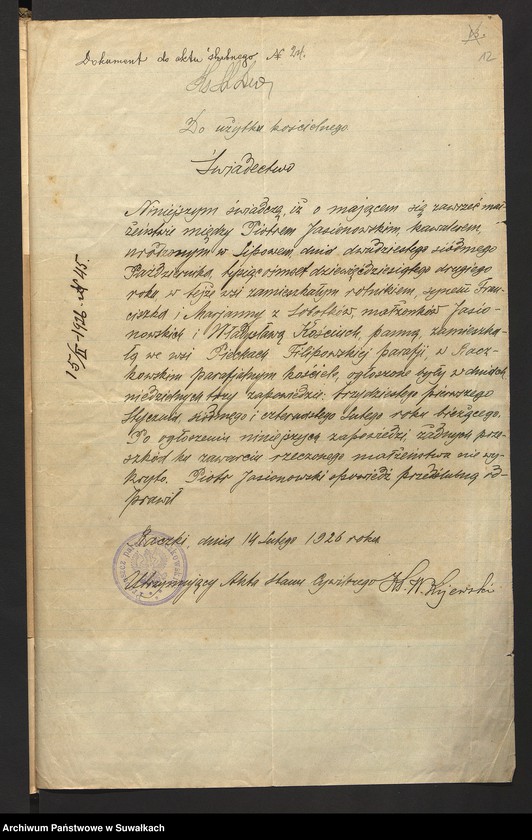 Dokument do aktu ślubnego № 24.
12
Do użytku kościelnego
Świadectwo
Niniejszym świadczę, iż o mającem się zawrzeć mał-
żeństwie między Piotrem Jasionowskim, kawalerem,
urodzonym w Lipowem, dnia dwudziestego siódmego
Października, tysiąc ośmset dziewięćdziesiątego drugiego
roku, w tejże wsi zamieszkałym rolnikiem, synem Fran-
ciszka i Marjanny z Sobotków, małżonków Jasio-
nowskich i Władysławą Kościuch, panną, zamieszka-
łą we wsi Piećkach Filipowskiej parafji, w Racz-
kowskim parafjalnym kościele, ogłoszone były w dniach
niedzielnych trzy zapowiedzie: trzydziestego pierwszego
Stycznia, siódmego i czternastego Lutego roku bieżącego.
Po ogłoszeniu niniejszych zapowiedzi żadnych prze-
szkód ku zawarciu rzeczonego małżeństwa nie wy-
kryto. Piotr Jasionowski spowiedź przedślubną od-
prawił
Raczki dnia 14 Lutego 1926 roku
Utrzymujący Akta Stanu Cywilnego Ks. W. Kijewski
Archiwum Państwowe w Suwałkach